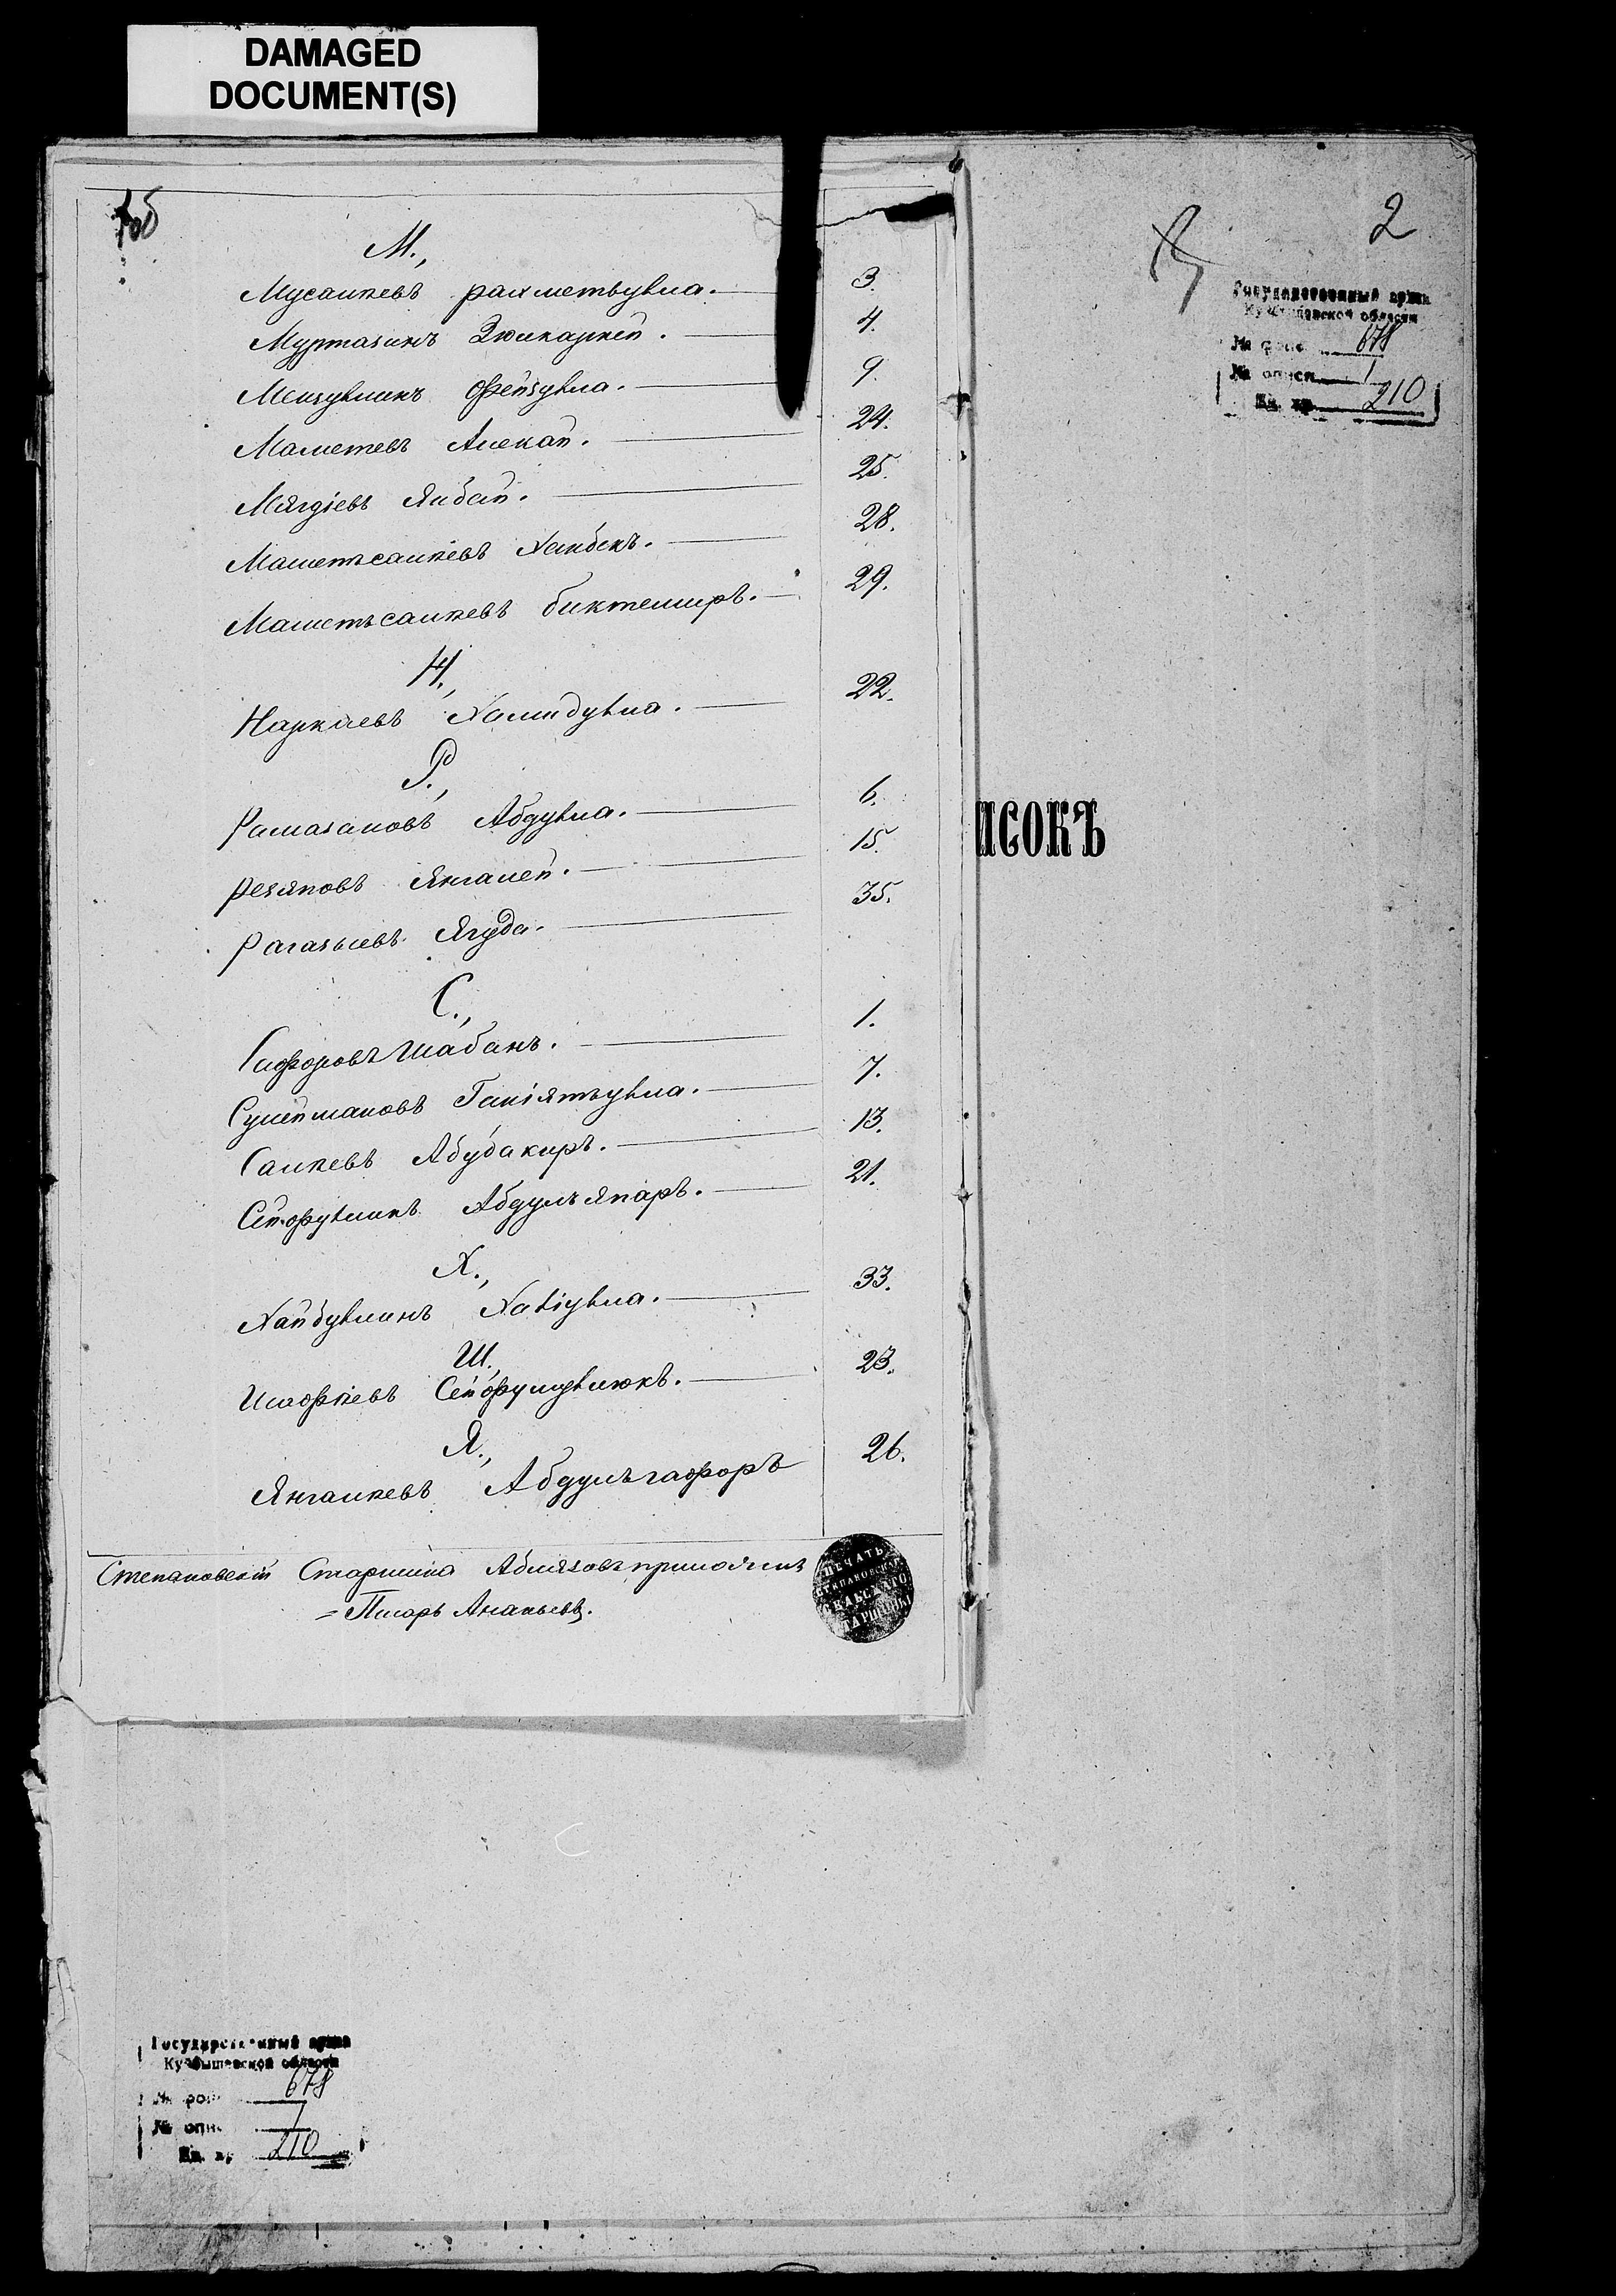 DAMAGED
DOCUMENT(S)
М.,
Мусалкевъ рахметвулла. 3.
Муртазинъ Зюлкарней. 4.
Мензулинъ Фейзулла. 9.
Маметевъ Алекай. 24.
Мягдіевъ Янбай. 25.
Маметьсалкевъ Хан­бекъ. 28.
Маметьсалкевъ биктемиръ. 29.
Н.,
Наркаевъ Хамидулла. 22.
Р.,
Рамазановъ Абдулла. 6.
резяповъ Янгалей. 15.
рагазыевъ Ягуда. 35.
С.,
Сафоровъ Шабанъ. 1.
Сулеймановъ Ганіятьулла. 7.
Салкевъ Абубакиръ. 13.
Сейфулинъ Абдулъ Япаръ. 21.
Х.,
Хайбуллинъ Хабіулла. 33.
Ш.,
Шафкевъ Сейфулмулюкъ. 23.
Я.,
Янгалкевъ Абдулъгафоръ 26.
Степановскій Старшина Аблязовъ приложилъ
=Писарь Ананьевъ.
ПЕЧАТЬ
СТЕПАНОВСКАГО
СЕЛЬСКАГО
СТАРШИНЫ
2
Государственный архив
Куйбышевской области
№ фонд 678
№ описи 1
Ед. хр. 210
ИСОКЪ
Государственный архив
Куйбышевской области
№ фон 678
№ опис 1
Ед. хр 210